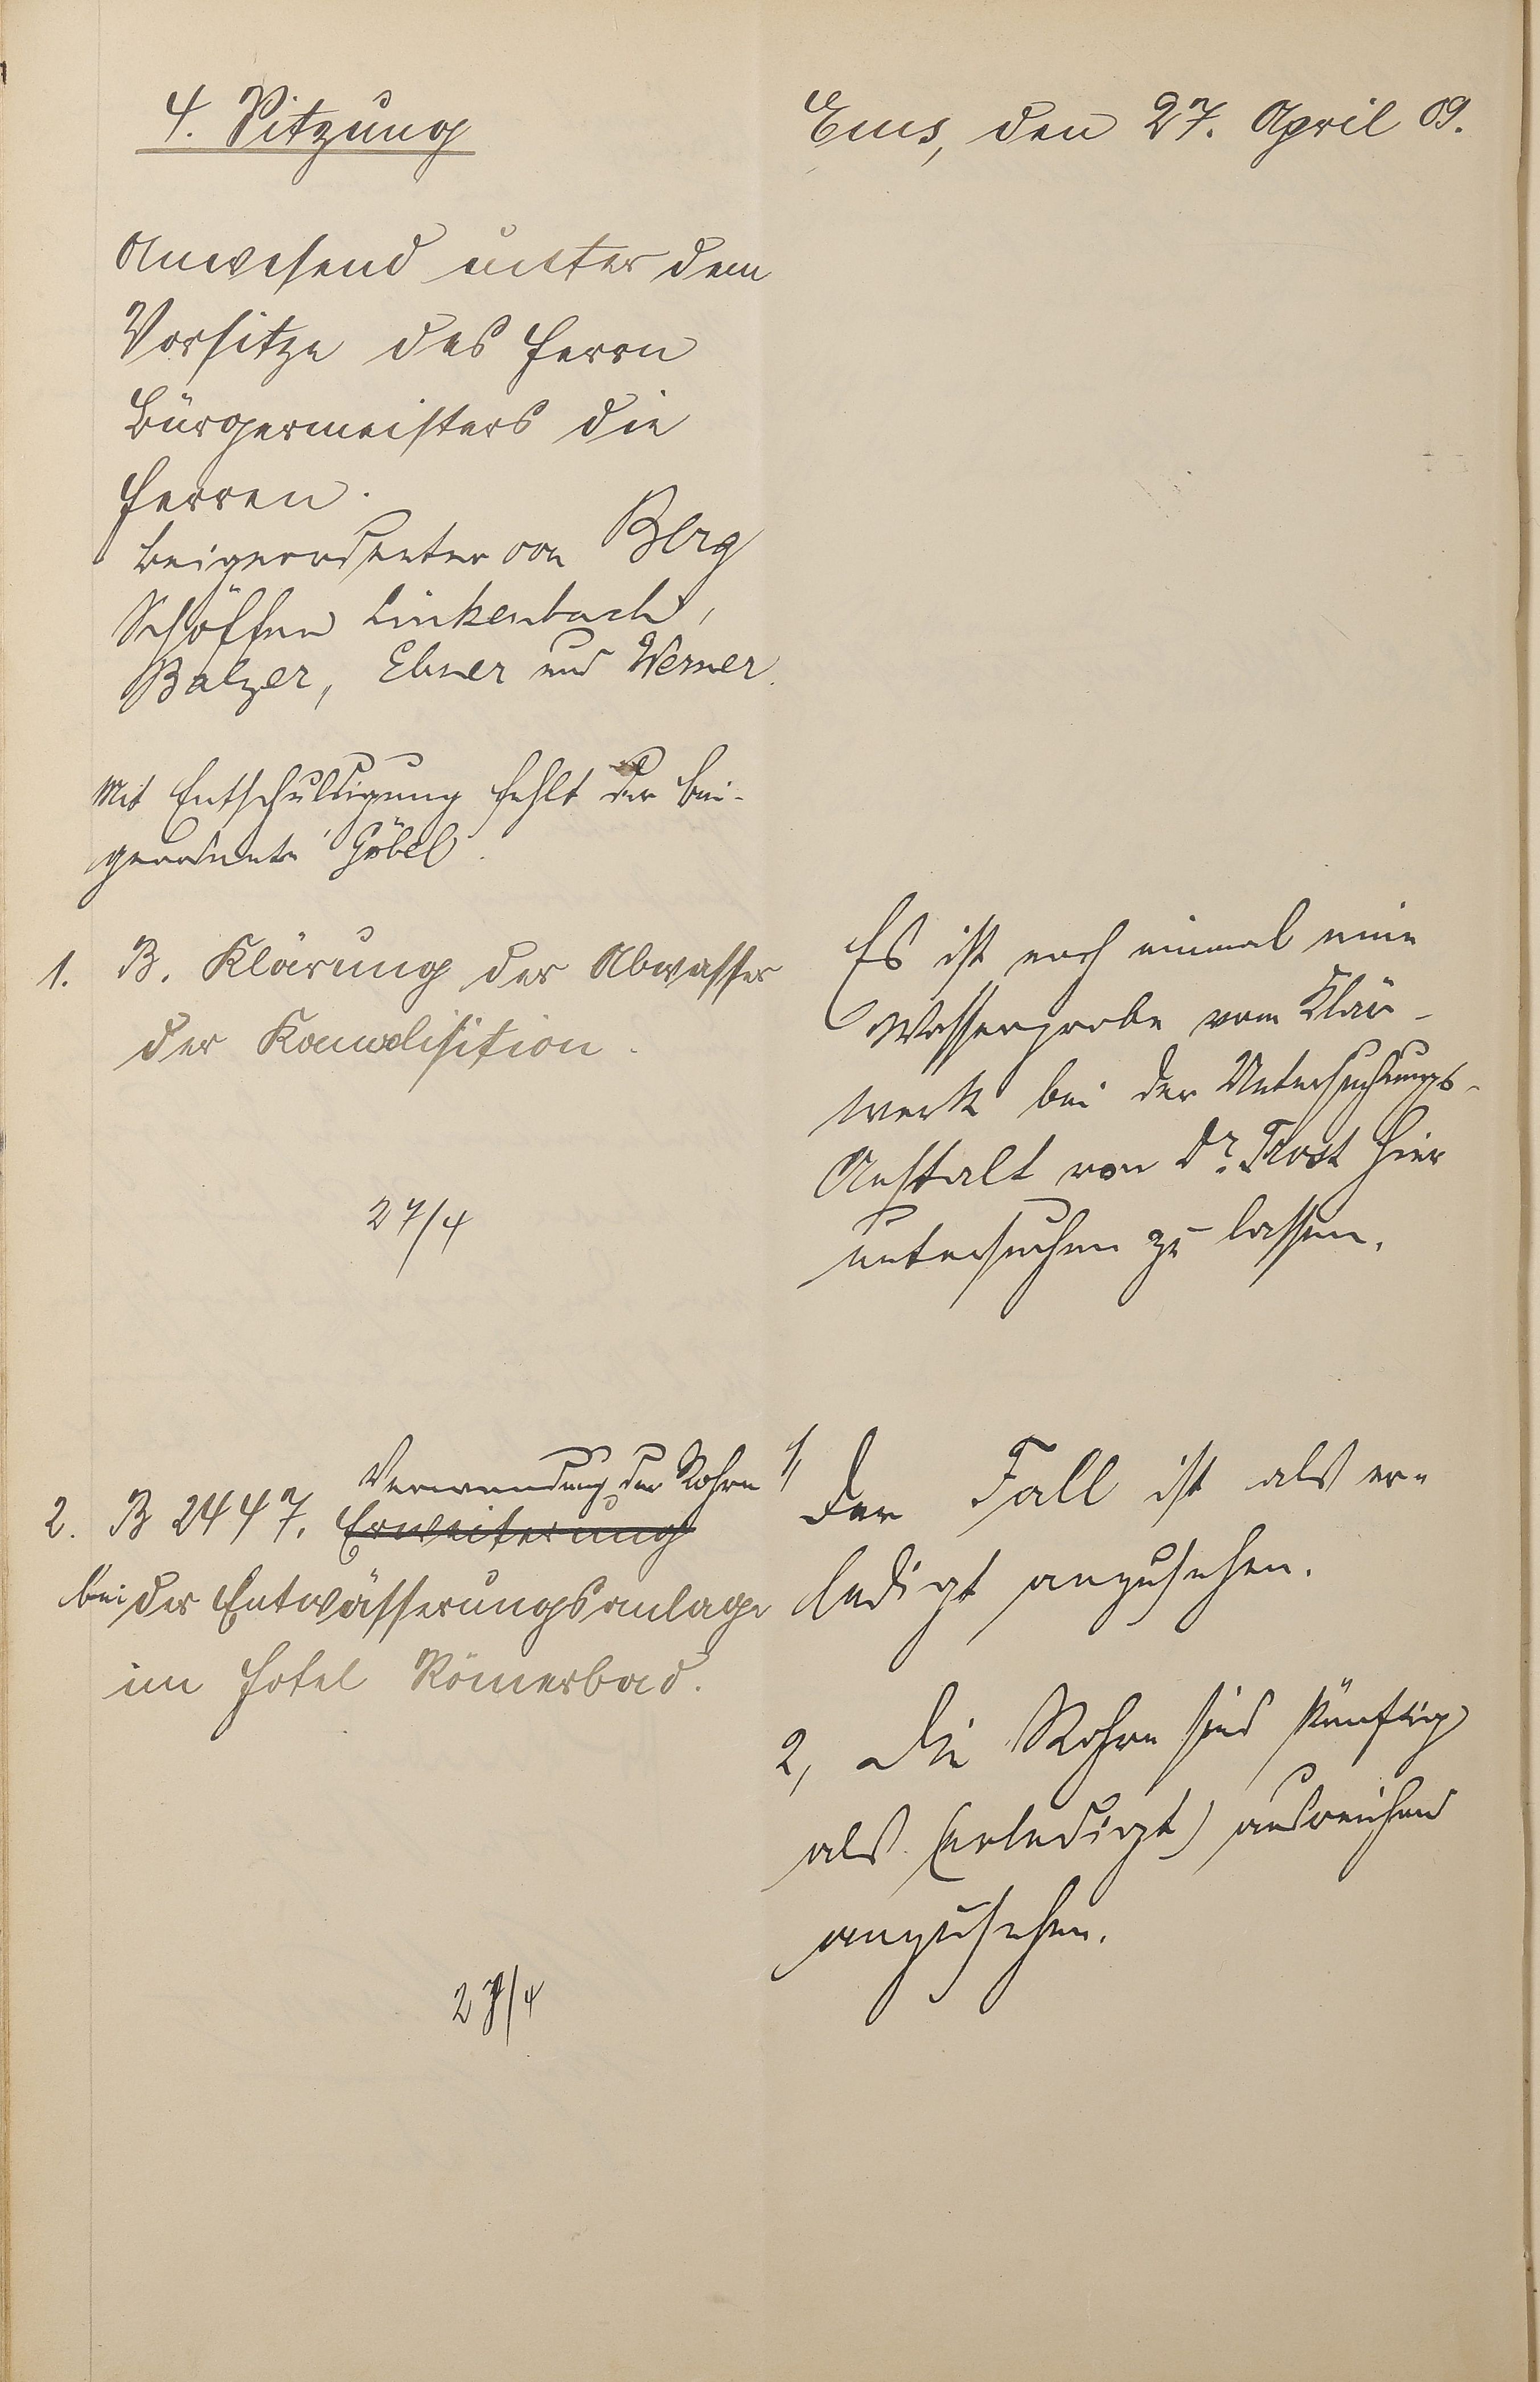 4. Sitzung
Ems, den 27. April 09.
Anwesend unter dem
Vorsitze des Herrn
Bürgermeisters die
Herren.
Beigeordneter von Berg
Schöffen Linkenbach,
Balzer, Ebner und Werner.
Mit Entschuldigung fehlt der Bei-
geordnete Göbel.
1. B. Klärung der Abwasser
der Kanalisition.
27/4
Es ist noch einmal eine
Wasserprobe vom Klär-
werk bei der Untersuchungs-
Anstalt von Dr. hier
untersuchen zu lassen.
Verwendung der Rohre
2. B 2447. Erweiterung
bei der Entwässerungsanlage
im Hotel Römerbad.
27/4
1, Der Fall ist als er-
ledigt anzusehen.
2, Die Rohre sind künftig
als (erledigt) ausreichend
anzusehen.